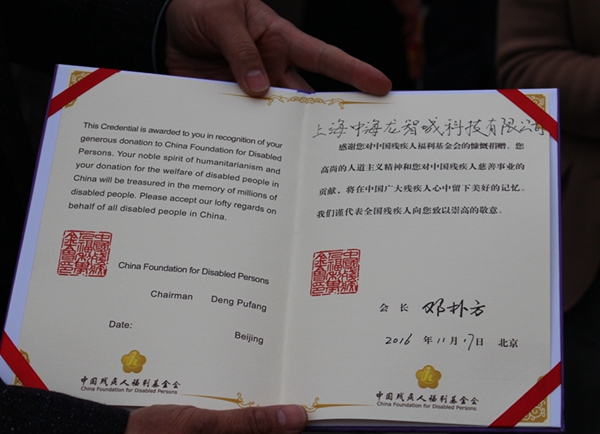 This Credential is awarded to you in recognition of your
generous donation to China Foundation for Disabled
Persons. Your noble spirit of humanitarianism and
your donation for the welfare of disabled people in
China will be treasured in the memory of millions of
disabled people. Please accept our lofty regards on
behalf of all disabled people in China.
China Foundation for Disabled Persons
Chairman Deng Pufang
Date: Beijing
中国残疾人福利基金会
China Foundation for Disabled Persons
上海中海龙智城科技有限公司
感谢您对中国残疾人福利基金会的慷慨捐赠。您
高尚的人道主义精神和您对中国残疾人慈善事业的
贡献，将在中国广大残疾人心中留下美好的记忆。
我们谨代表全国残疾人向您致以崇高的敬意。
会长 邓朴方
2016 年 11 月 17 日 北京
中国残疾人福利基金会
China Foundation for Disabled Persons